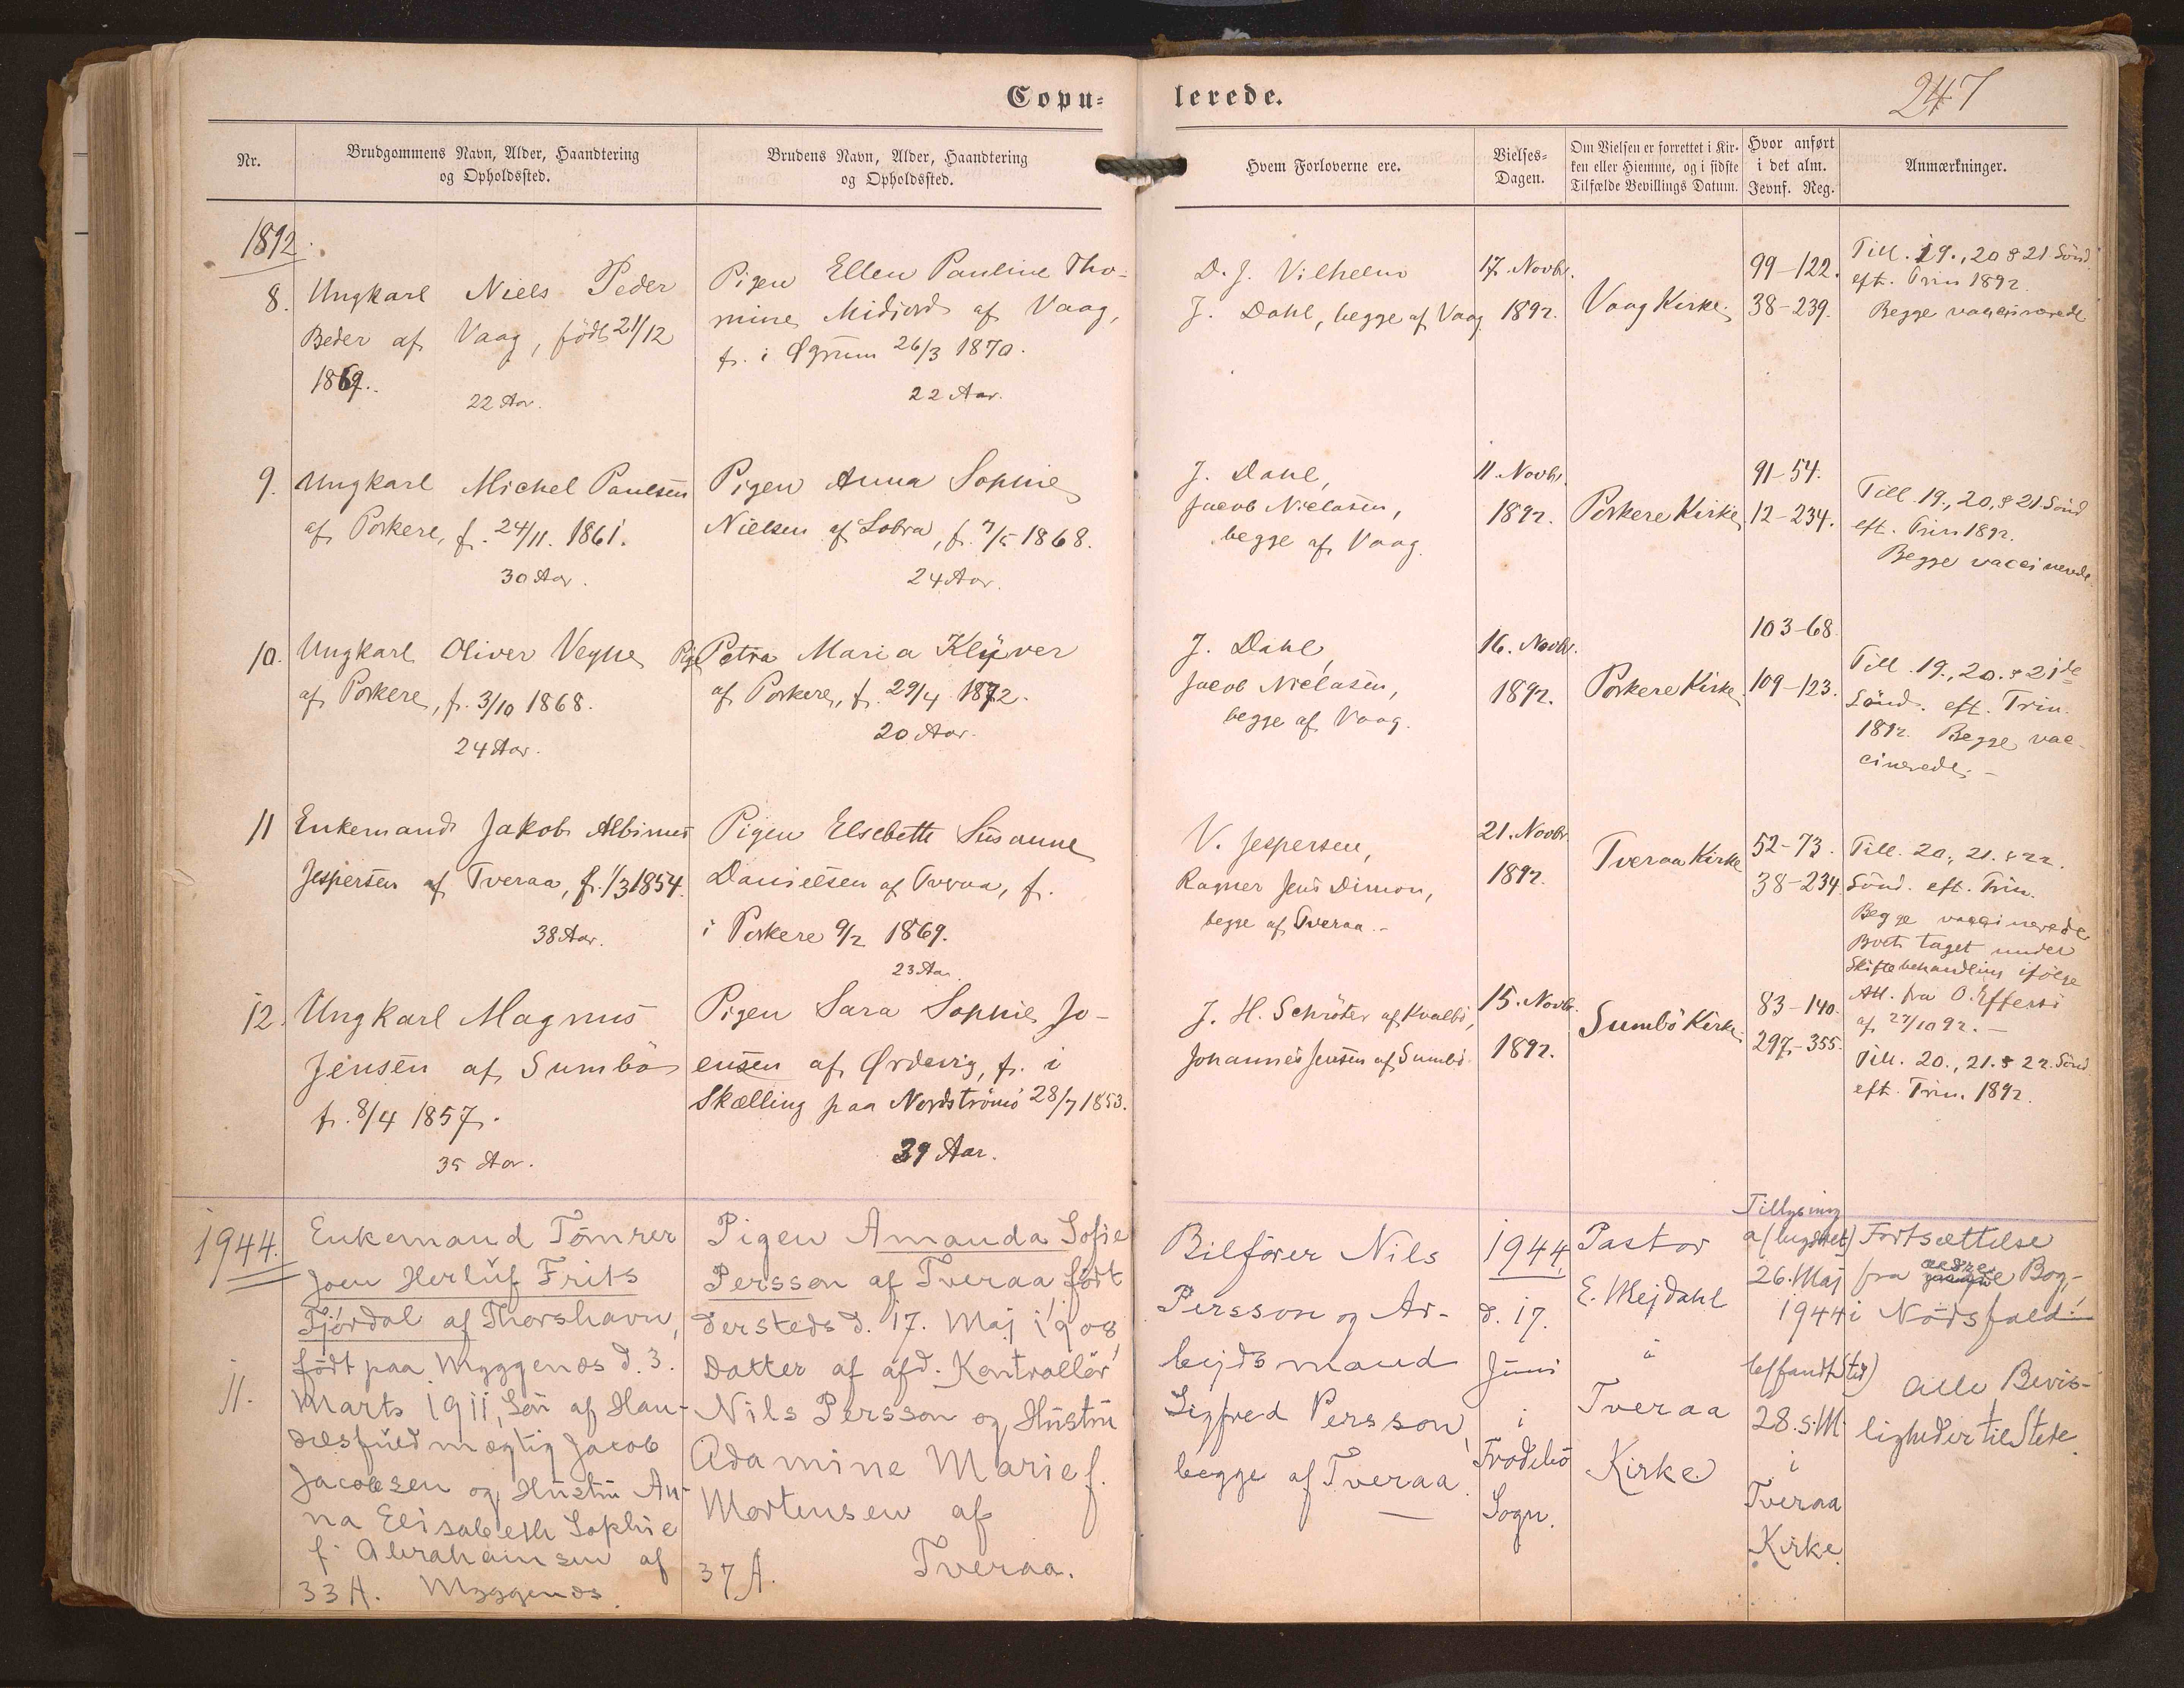 Copu-
lerede.
247
Nr.
Brudgommens Navn, Alder, Haandtering
og Opholdssted.
Brudens Navn, Alder, Haandtering
og Opholdssted.
Hvem Forloverne ere.
Vielses-
Dagen.
Om Vielsen er forrettet i Kir-
ken eller Hiemme, og i sidste
Tilfælde Bevillings Datum.
Hvor anført
i det alm.
Jevnf. Reg.
Anmærkninger.
1892.
8.
Ungkarl Niels Peder
Beder af Vaag, født 21/12
1869.
22 Aar.
Pigen Ellen Pauline Tho-
mine Midjord af Vaag,
f. i Øgrum 26/3 1870.
22 Aar.
D. J. Vilhelm
J. Dahl, begge af Vaag
17. Novbr.
1892.
Vaag Kirke
99-122.
38-239.
Till. 19., 20 & 21 Sönd.
eft. Trin 1892.
Begge vaccinerede
9.
Ungkarl Michel Paulsen
af Porkere, f. 24/11. 1861.
30 Aar.
Pigen Anna Sophie
Nielsen af Lobra, f. 7/5 1868.
24 Aar.
J. Dahl,
Jacob Nielasen,
begge af Vaag.
11. Novbr.
1892.
Porkere Kirke
91-54.
12-234.
Till. 19., 20, & 21. Sönd
eft. Trin 1892.
Begge vaccinerede.
10.
Ungkarl Oliver Vegne
af Porkere, f. 3/10 1868.
24 Aar.
Pige Petra Maria Klÿver
af Porkere, f. 29/4 1872.
20 Aar.
J. Dahl,
Jacob Nielasen,
begge af Vaag.
16. Novbr.
1892.
Porkere Kirke
103-68.
109-123.
Till. 19., 20. & 21de
Sönd. eft. Trin.
1892. Begge vac-
cinerede. -
11
Enkemand Jakob Albinus
Jespersen af Tveraa, f. 1/3 1854.
38 Aar.
Pigen Elsebeth Susanne
Danielsen af Tveraa, f.
i Porkere 9/2 1869.
23 Aar.
V. Jespersen,
Ragner Jens Dimon,
begge af Tveraa. -
21. Novbr.
1892.
Tveraa Kirke
52-73.
38-234.
Till. 20., 21. & 22.
Sönd. eft. Trin.
Begge vaccinerede
Boet taget under
Skiftebehandling ifölge
Att. fra
af 27/10 92. -
12.
Ungkarl Magnus
Jensen af Sumbö
f. 8/4 1857.
35 Aar.
Pigen Sara Sophie Jo-
ensen af Ørdevig, f. i
Skælling paa Nordströmö 28/7 1853.
39 Aar.
J. H. Schröter af Kvalbö,
Johannes Jensen af Sumbö.
15. Novbr.
1892.
Sumbö Kirke.
83-140.
297-355.
Till. 20., 21. & 22. Sönd
eft. Trin. 1892.
1944.
11.
Enkemand Tömrer
Joen Herluf Frits
Fjördal af Thorshavn,
födt paa Myggenæs d. 3.
Marts 1911, Sön af Han-
delsfuldmægtig Jacob
Jacobsen og Hustru An-
na Elisabeth Sophie
f. Abrahamsen af
33 A. Myggenæs.
Pigen Amanda Sofie
Persson af Tveraa födt
dersteds d. 17. Maj 1908,
Datter af afd. Kontrollör
Nils Persson og Hustru
Adamine Marie f.
Mortensen af
37 A. Tveraa.
Bilförer Nils
Persson og Ar-
bejdsmand
Sigfred Persson,
begge af Tveraa.
1944,
d. 17.
Juni
i
Frodebö
Sogn.
Pastor
E. Mejdahl
i
Tveraa
Kirke
Tillysning
26. Maj
1944
28. s. M.
i
Tveraa
Kirke.
Fortsættelse
fra ældre Bog,
i Nödsfald
Alle Bevis-
ligheder til Stede.